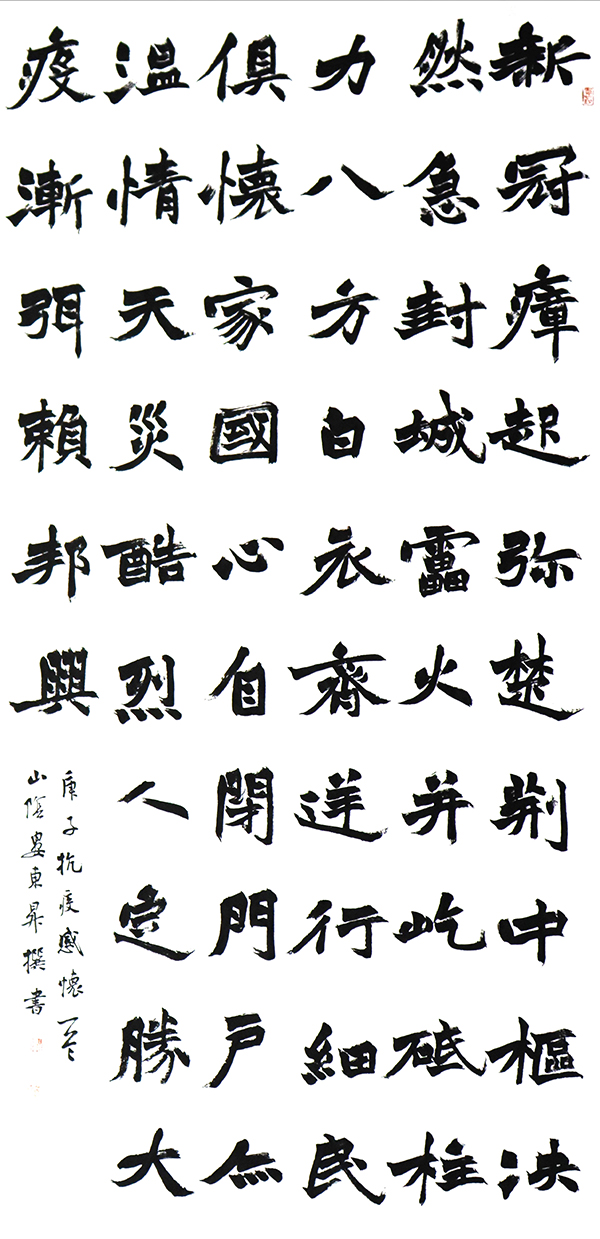 新冠瘴起弥楚荆中樞決
然急封城靁火并屹砥柱
力八方白衣齊逆行細民
俱懐家國心自閉門戶亦
溫情天災酷烈人定勝大
疫漸弭賴邦興
庚子抗疫感懷一首
山陰婁東昇撰書